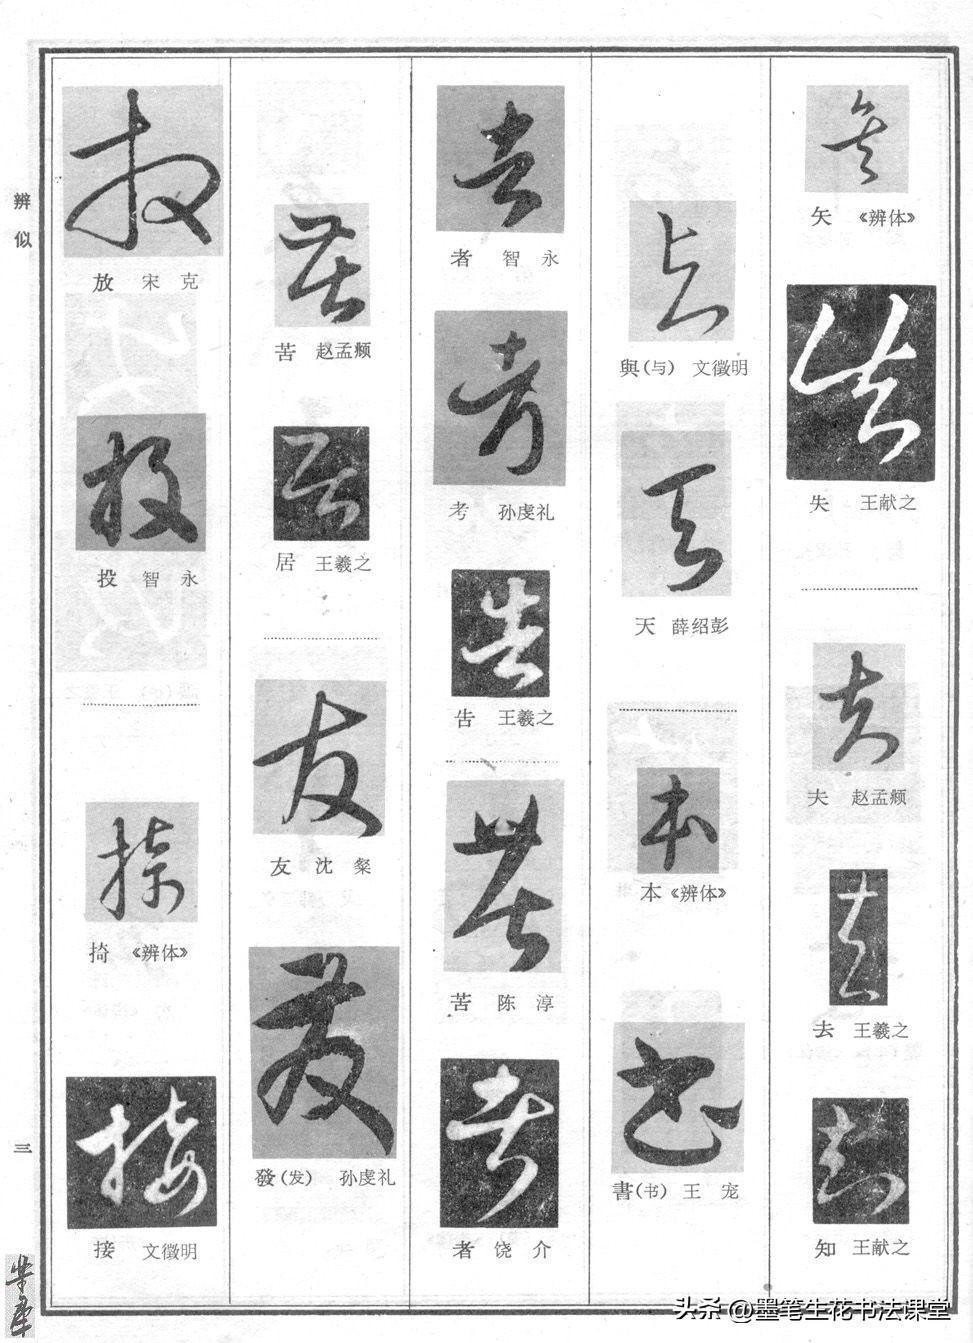 矢 《辨体》
失 王献之
夫 赵孟頫
去 王羲之
知 王献之
與(与) 文徵明
天 薛绍彭
本《辨体》
書(书) 王宠
者 智永
考 孙虔礼
告 王羲之
苦 陈淳
者 饶介
苦 赵孟頫
居 王羲之
友 沈粲
發(发) 孙虔礼
放 宋克
投 智永
掎 《辨体》
接 文徵明
辨似
三
头条 @墨笔生花书法课堂